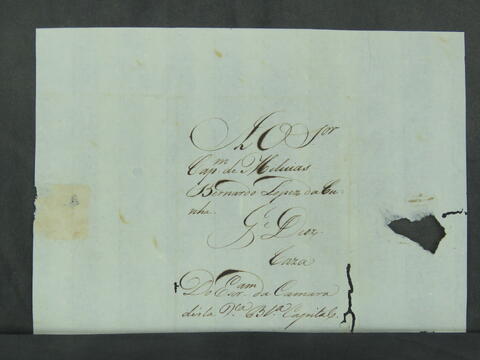 Ao Sor
Capm de Milicias
Bernardo Lopez da Cu-
nha.
Ge Dioz
Caza
Do Esc.am da Camara
desta Va Capital.